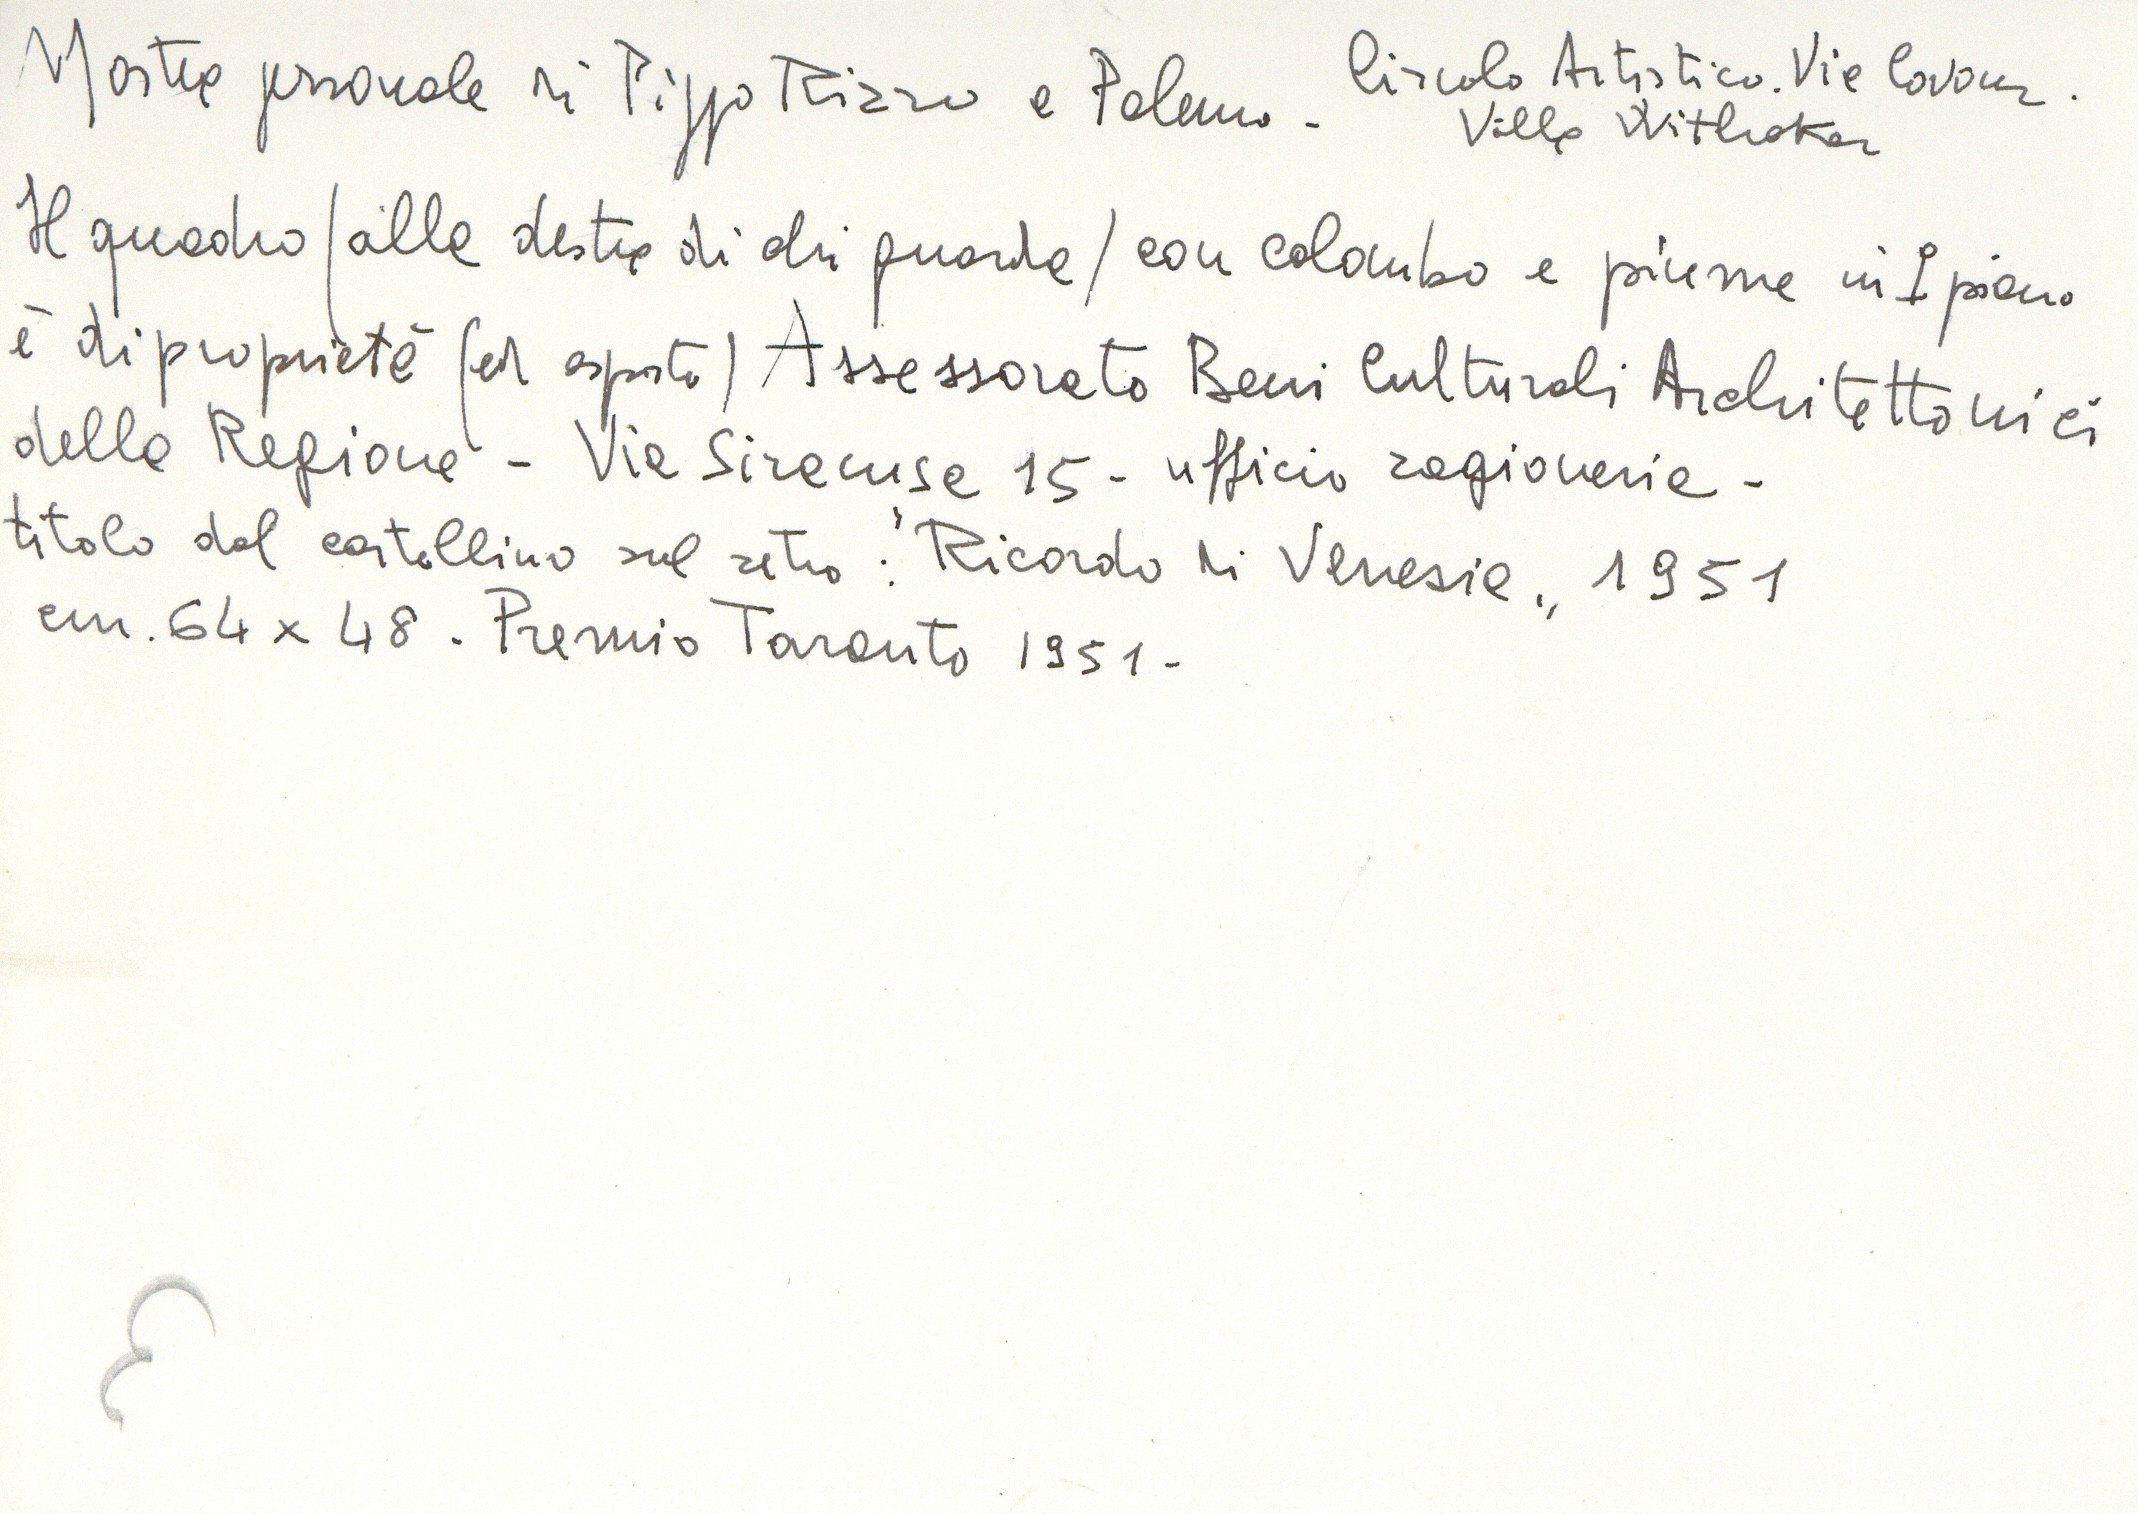 Mostra personale di Pippo Rizzo a Palermo - Circolo Artistico. Via Cavour.
Villa Withaker
Il quadro (alla destra di chi guarda) con colombo e piume in I piano
è di proprietà (ed esposto) Assessorato Beni Culturali Architettonici
della Regione - Via Siracusa 15 - ufficio ragioneria -
titolo dal cartellino sul retro: "Ricordo di Venezia", 1951
cm. 64 x 48 . Premio Taranto 1951 -